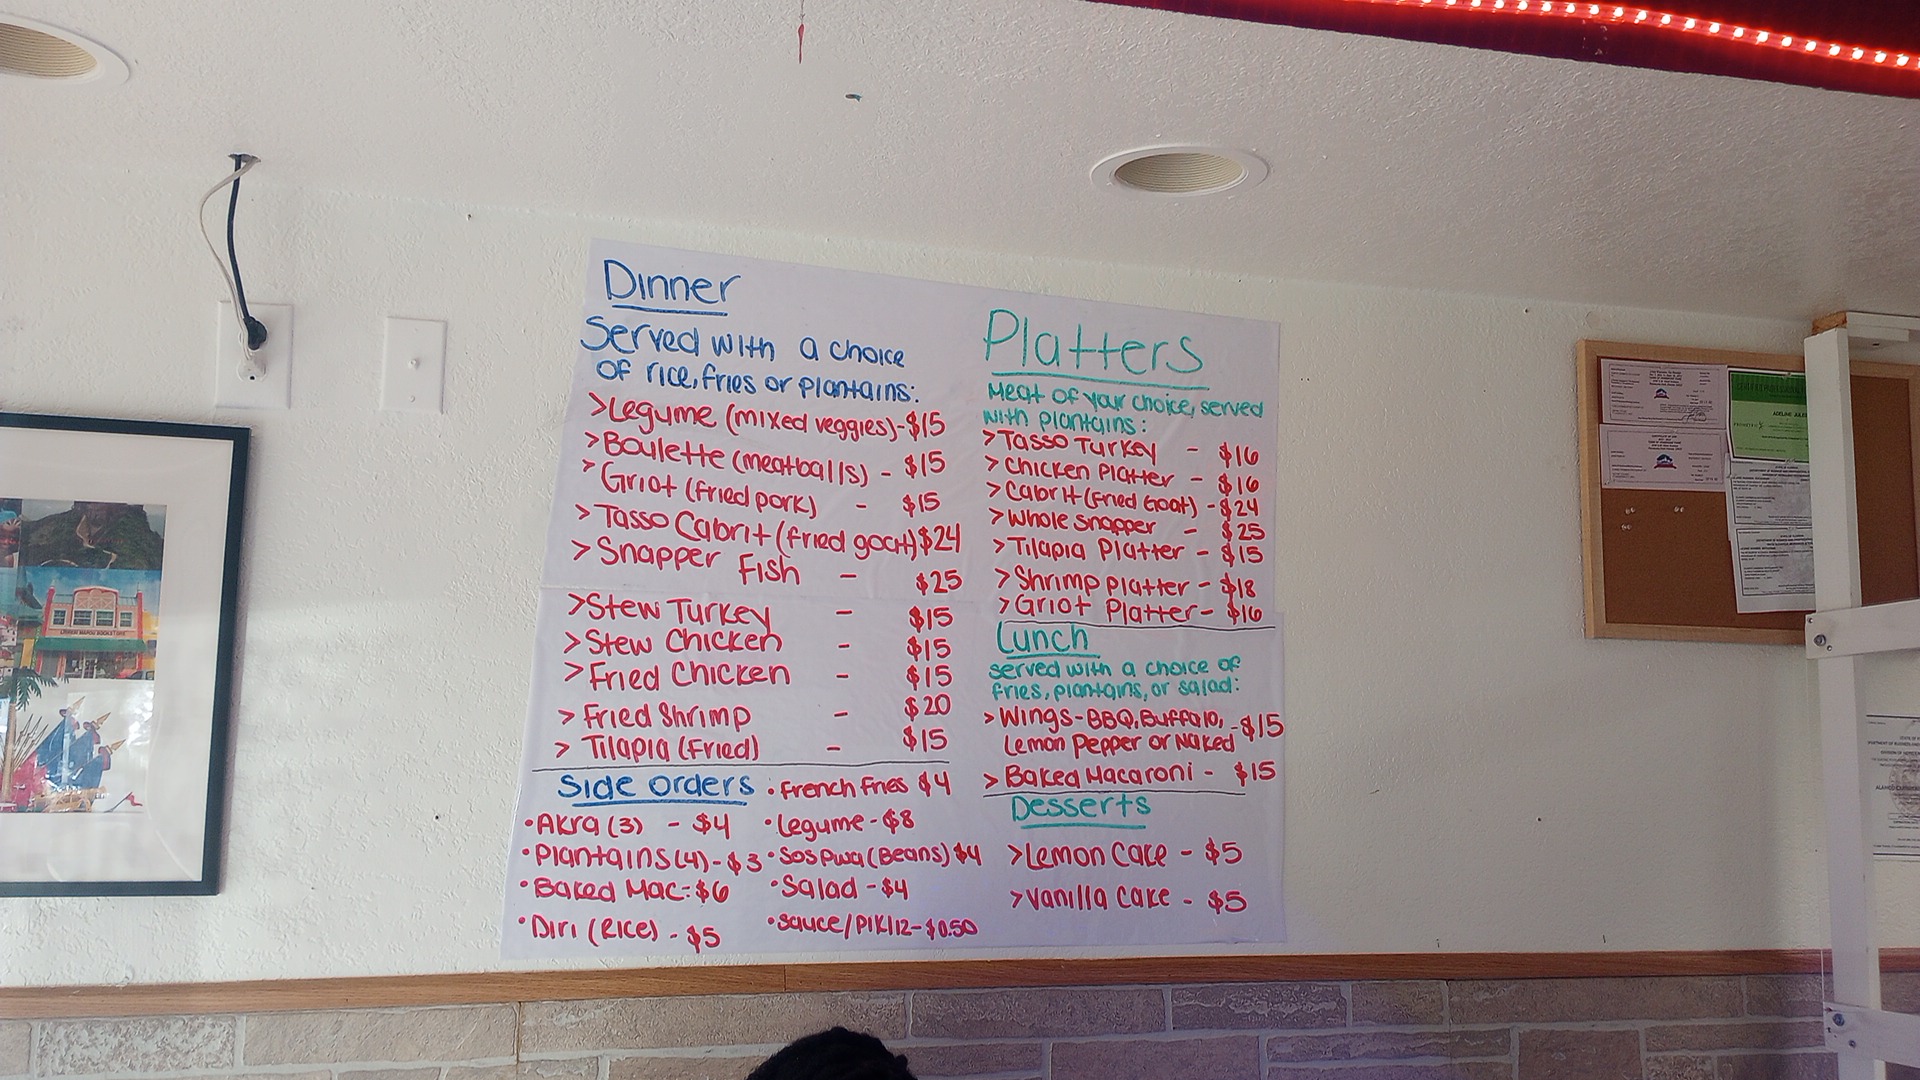 Dinner
Served with a choice
of rice, fries or plantains:
>Legume (mixed veggies)-$15
>Boulette (meatballs) - $15
>Griot (fried pork) - $15
>Tasso Cabrit (fried goat) $24
>Snapper Fish - $25
>Stew Turkey - $15
>Stew Chicken - $15
>Fried Chicken - $15
>Fried Shrimp - $20
>Tilapia (Fried) - $15
Side orders
•Akra (3) - $4
•Plantains (4) - $3
•Baked Mac: $6
•Diri (Rice) - $5
•French Fries $4
•Legume - $8
•Sos pwa (Beans) $4
•Salad - $4
•sauce/Pikliz- $0.50
Platters
Meat of your choice, served
with plantains:
>Tasso Turkey - $16
>Chicken Platter - $16
>Cabrit (Fried Goat) - $24
>Whole Snapper - $25
>Tilapia Platter - $15
>Shrimp Platter - $18
>Griot Platter - $16
Lunch
served with a choice of
fries, plantains, or salad:
>Wings-BBQ, Buffalo, - $15
Lemon Pepper or Naked
>Baked Macaroni - $15
Desserts
>Lemon Cake - $5
>Vanilla Cake - $5